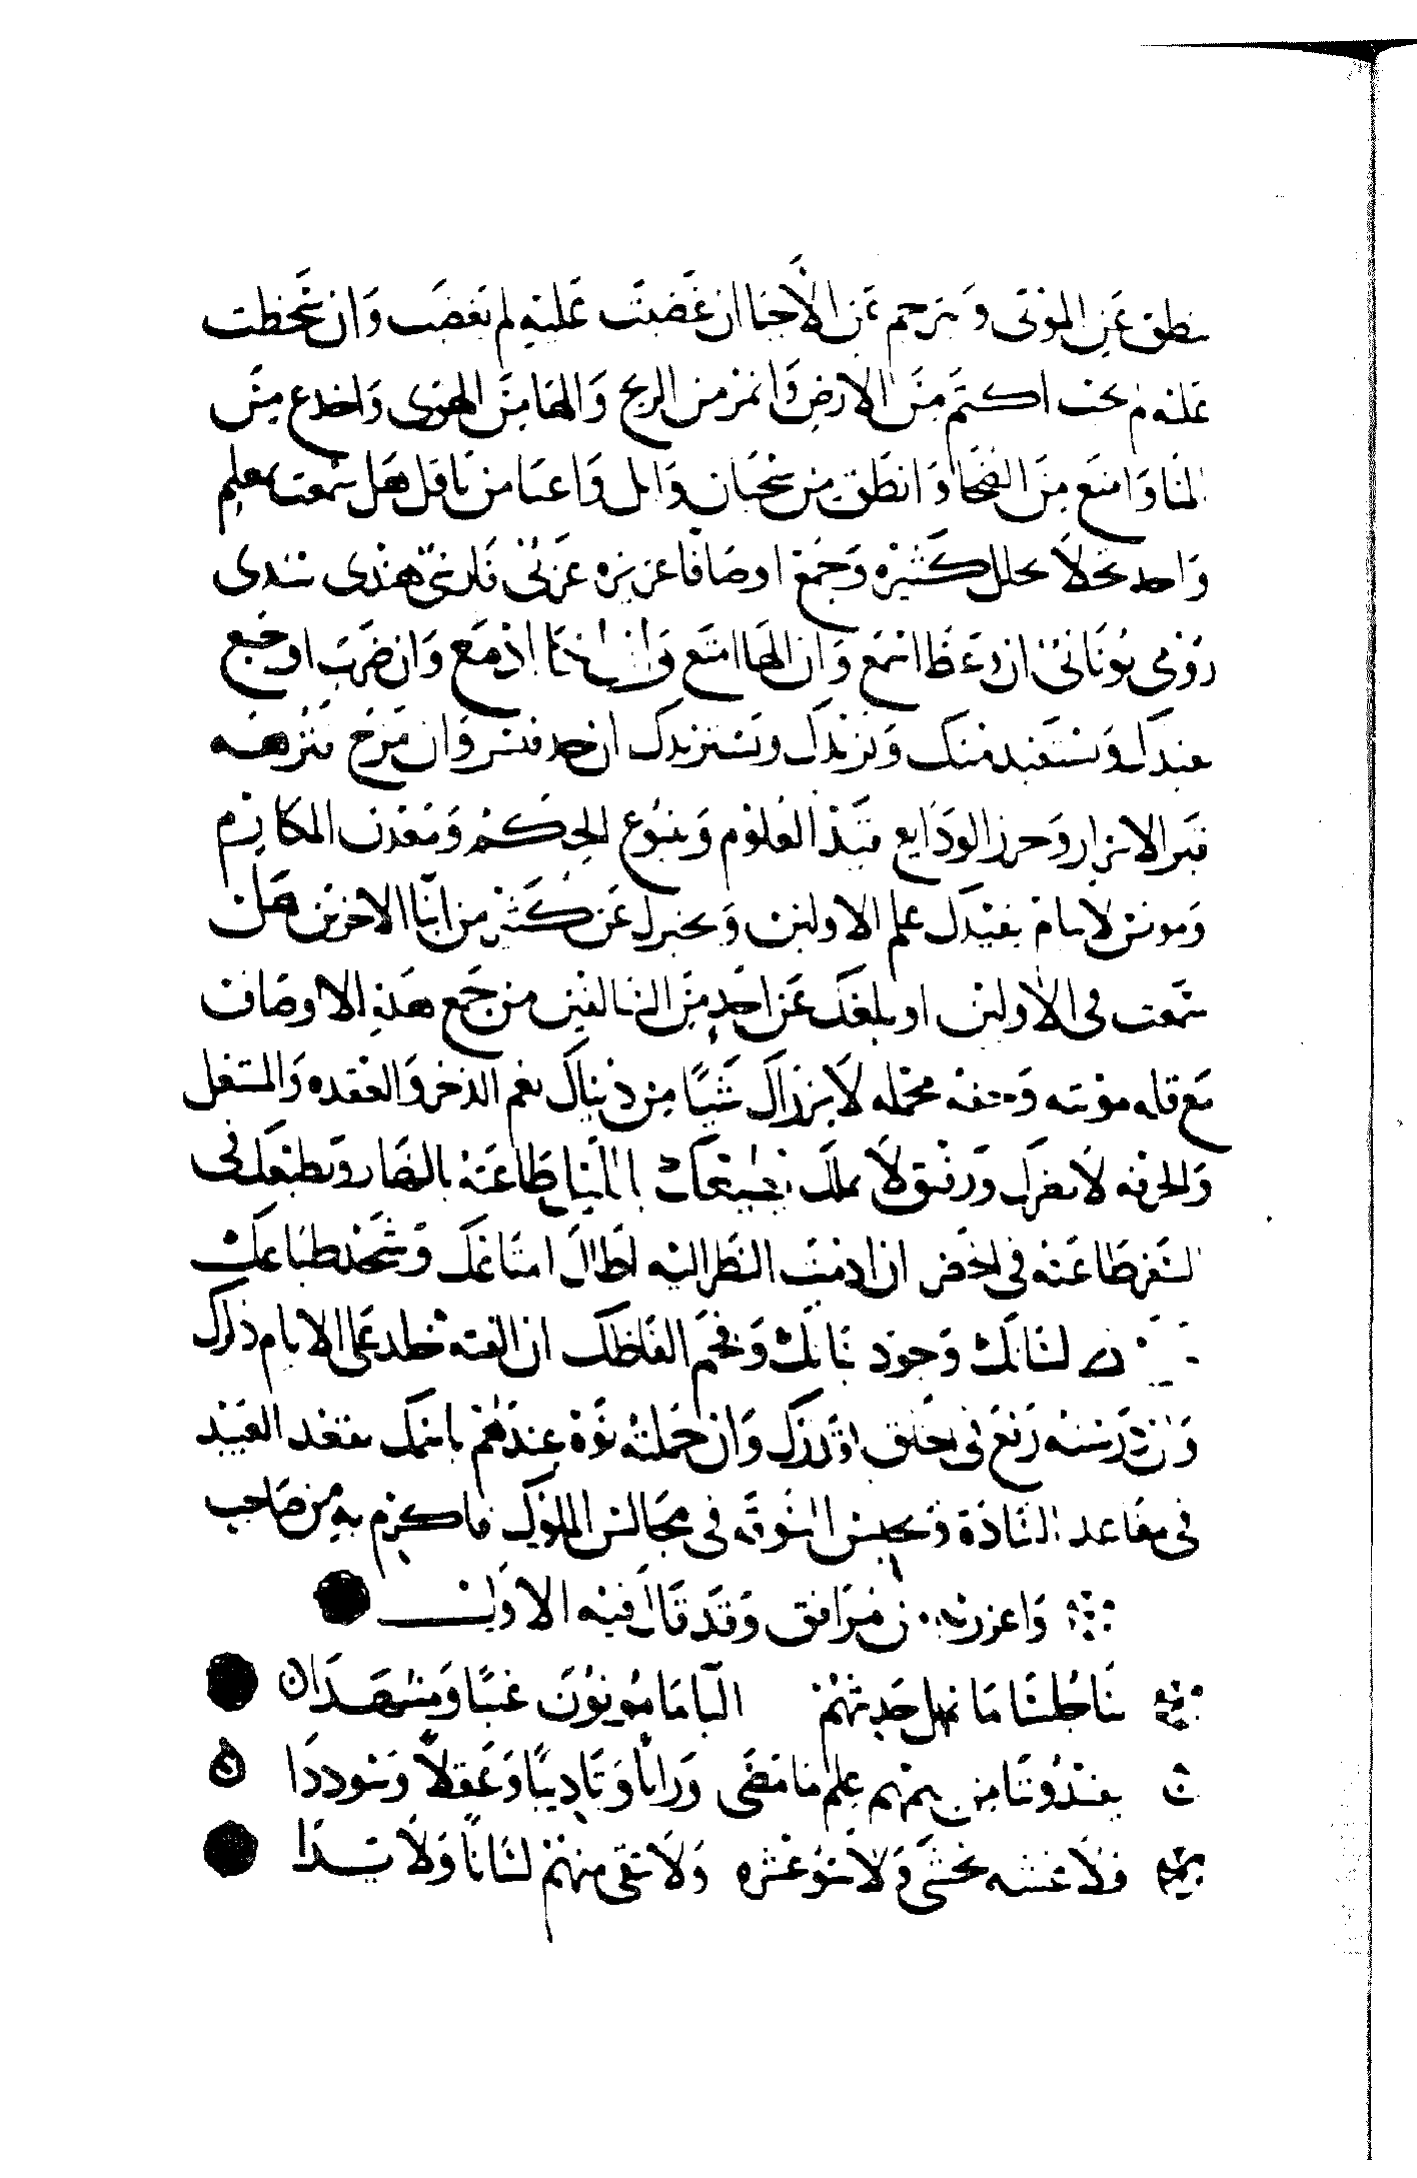 ينطق عن الموتى ويترجم عن الأحيا ان غضبت عليه لم يغضب وان سخطت
عليه لم يجب اكتم من الارض وانم من الريح والها من الهوى واخدع من
المنا وامتع من الضحا وانطق من سحبان وايل واعيا من باقل هل سمعت بمعلم
واحد تحلا بحلل كثيره وجمع اوصافا غزيره عربي فارسي هندي سندي
رومي يوناني ان وعظ اسمع وان الها امتع وان ادمع وان ضرب اوجع
يفيدك ويستفيد منك ويزيدك ويستزيدك ان جد فسر وان مزح فنزهه
قبر الاسرار وحرز الودايع قيد العلوم وينبوع الحكم ومعدن المكارم
ومونس لا ينام يفيدك علم الاولين ويخبرك عن كثير من انبا الاخرين هل
سمعت في الاولين او بلغك عن احد من السالفين من جمع هذه الاوصاف
مع قله مونته وخفه محمله لا يرزاك شيا من دنياك نعم الذخر والعقده والمشتغل
والحرفه لا يضرك ورفيق لا يملك يطيعك بالليل طاعته بالنهار ويطيعك في
السفر طاعته في الحضر ان ادمت النظر اليه اطال امتاعك وشحذ طباعك
لسانك وجود بنانك وفخم الفاظك ان الفته خلد على الايام ذكرك
وان درسته رفع في الخلق قدرك وان حملته نوه عندهم باسمك يقعد العبيد
في مقاعد السادة ويجلس السوقه في مجالس الملوك فاكرم به من صاحب
واعزز من مرافق وقد قال فيه الاول
لنا جلسا ما نمل حديثهم البا مامونون غيبا ومشهدا
يفيدوننا من علمهم علم ما مضى ورايا وتاديبا وعقلا وسوددا
فلا غيبه نخشى ولا سو عشره ولا نتقي منهم لسانا ولا يدا